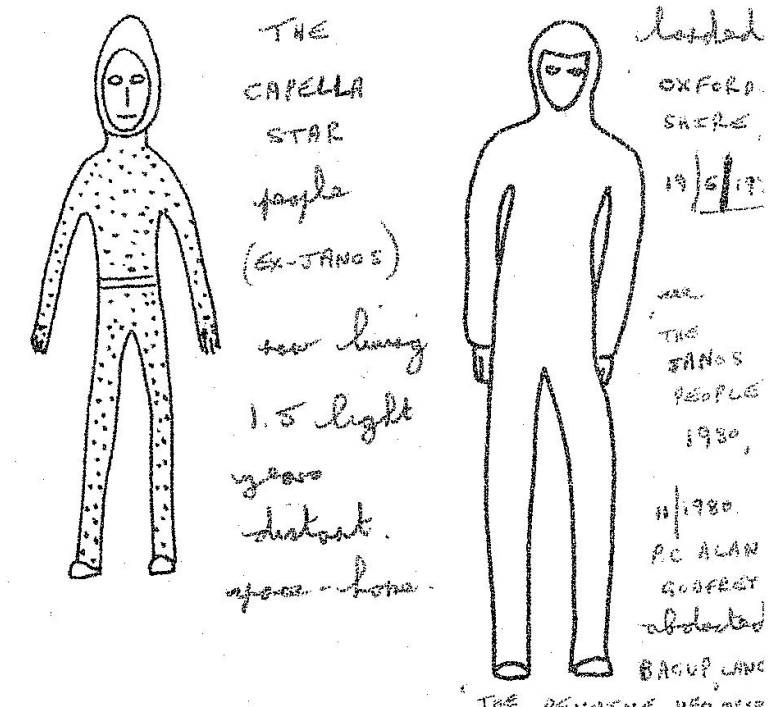 THE
CAPELLA
STAR
people
(EX-JANOS)
now living
1.5 light
years
distant.
space-home.
landed
OXFORD.
SHIRE.
19/6/197
are
THE
JANOS
PEOPLE
1980,
11/1980.
P.C ALAN
GODFREY
abducted
BACUP, LANC
'THE PENNINE